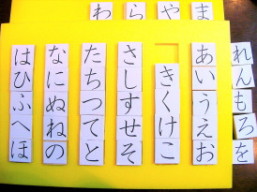 ま
や
ら
わ
れんもろを
あいうえお
きくけこ
さしすせそ
たちつてと
なにぬねの
はひふへほ